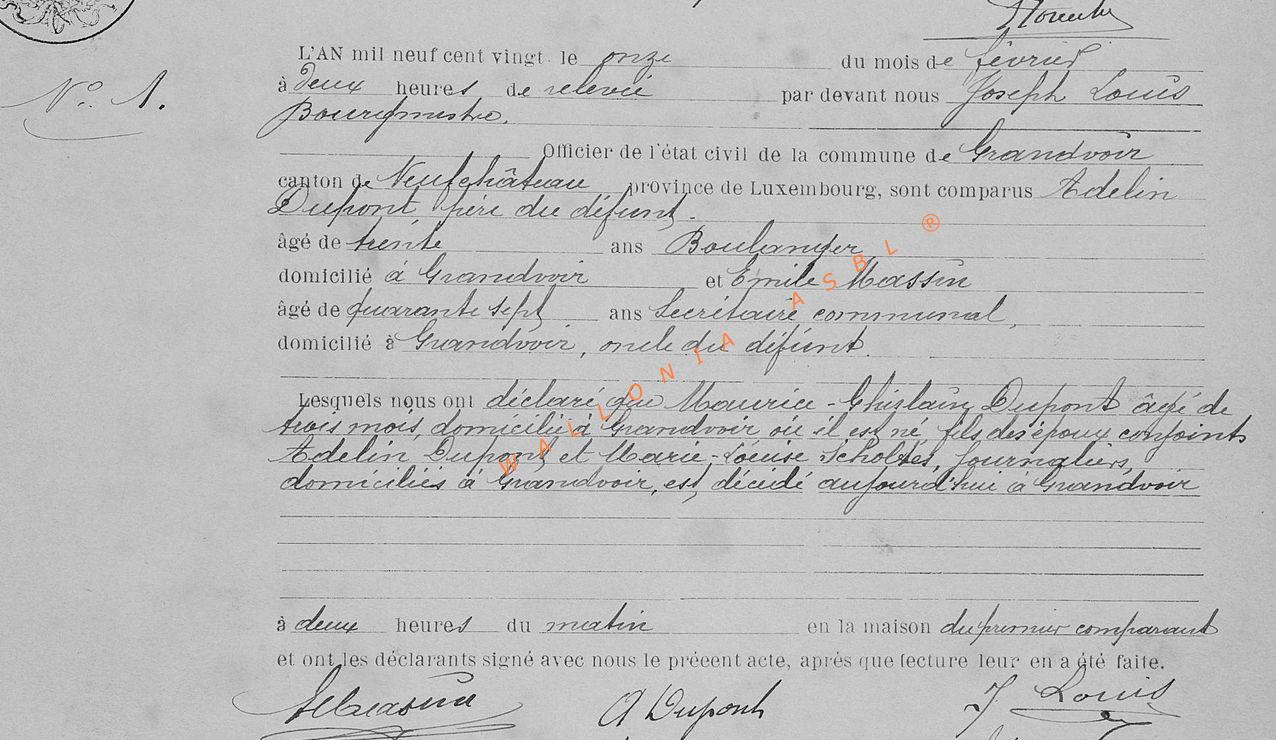 L'AN mil neuf cent vingt le onze du mois de février
N° 1.
à deux heures de relevée par devant nous Joseph Louis
Bourgmestre.
Officier de l'état civil de la commune de Grandvoir
canton de Neufchâteau province de Luxembourg, sont comparus Adelin
Dupont père du défunt.
âgé de trente ans Boulanger
domicilié à Grandvoir et Emile Massin
âgé de quarante sept ans Secrétaire communal,
domicilié à Grandvoir, oncle du défunt.
Lesquels nous ont déclaré que Maurice-Ghislain Dupont âgé de
trois mois, domicilié à Grandvoir où il est né, fils des époux conjoints
Adelin Dupont et Marie-Louise Scholtès, journaliers,
domiciliés à Grandvoir, est décédé aujourd'hui à Grandvoir
à deux heures du matin en la maison du premier comparant
et ont les déclarants signé avec nous le préeent acte, après que lecture leur en a été faite.
A Dupont J. Louis
WALLONIA ASBL ®